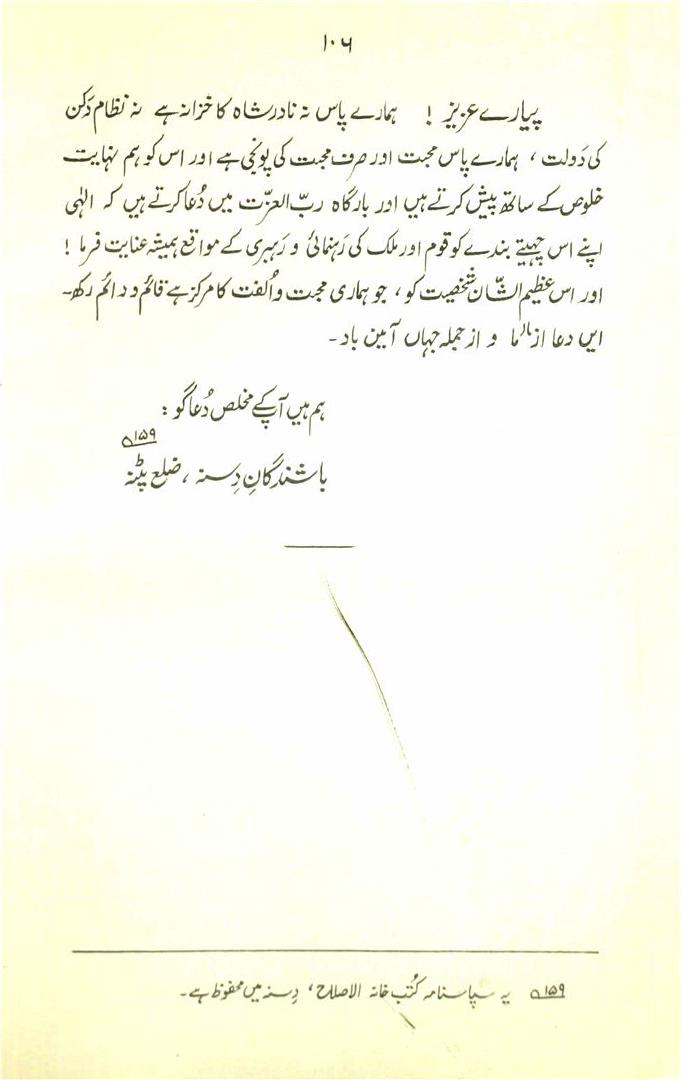 ۱۰۶
پیارے عزیز ! ہمارے پاس نہ نادر شاہ کا خزانہ ہے نہ نظام دَکن
کی دَولت ، ہمارے پاس محبت اور صرف محبت کی پونجی ہے اور اس کو ہم نہایت
خلوص کے ساتھ پیش کرتے ہیں اور بارگاہ ربّ العزّت میں دُعا کرتے ہیں کہ الٰہی
اپنے اس چہیتے بندے کو قوم اور ملک کی رَہنمائی و رَہبری کے مواقع ہمیشہ عنایت فرما !
اور اس عظیم الشّان شخصیت کو ، جو ہماری محبت و اُلفت کا مرکز ہے قائم و دائم رکھ۔
ایں دعا از ما و از جملہ جہاں آمین باد۔
ہم ہیں آپ کے مخلص دُعا گو :
باشندگانِ دِسنہ ، ضلع پٹنہ ۱۵۹؎
۱۵۹؎ یہ سپاسنامہ کُتب خانہ الاصلاح ، دِسنہ میں محفوظ ہے۔